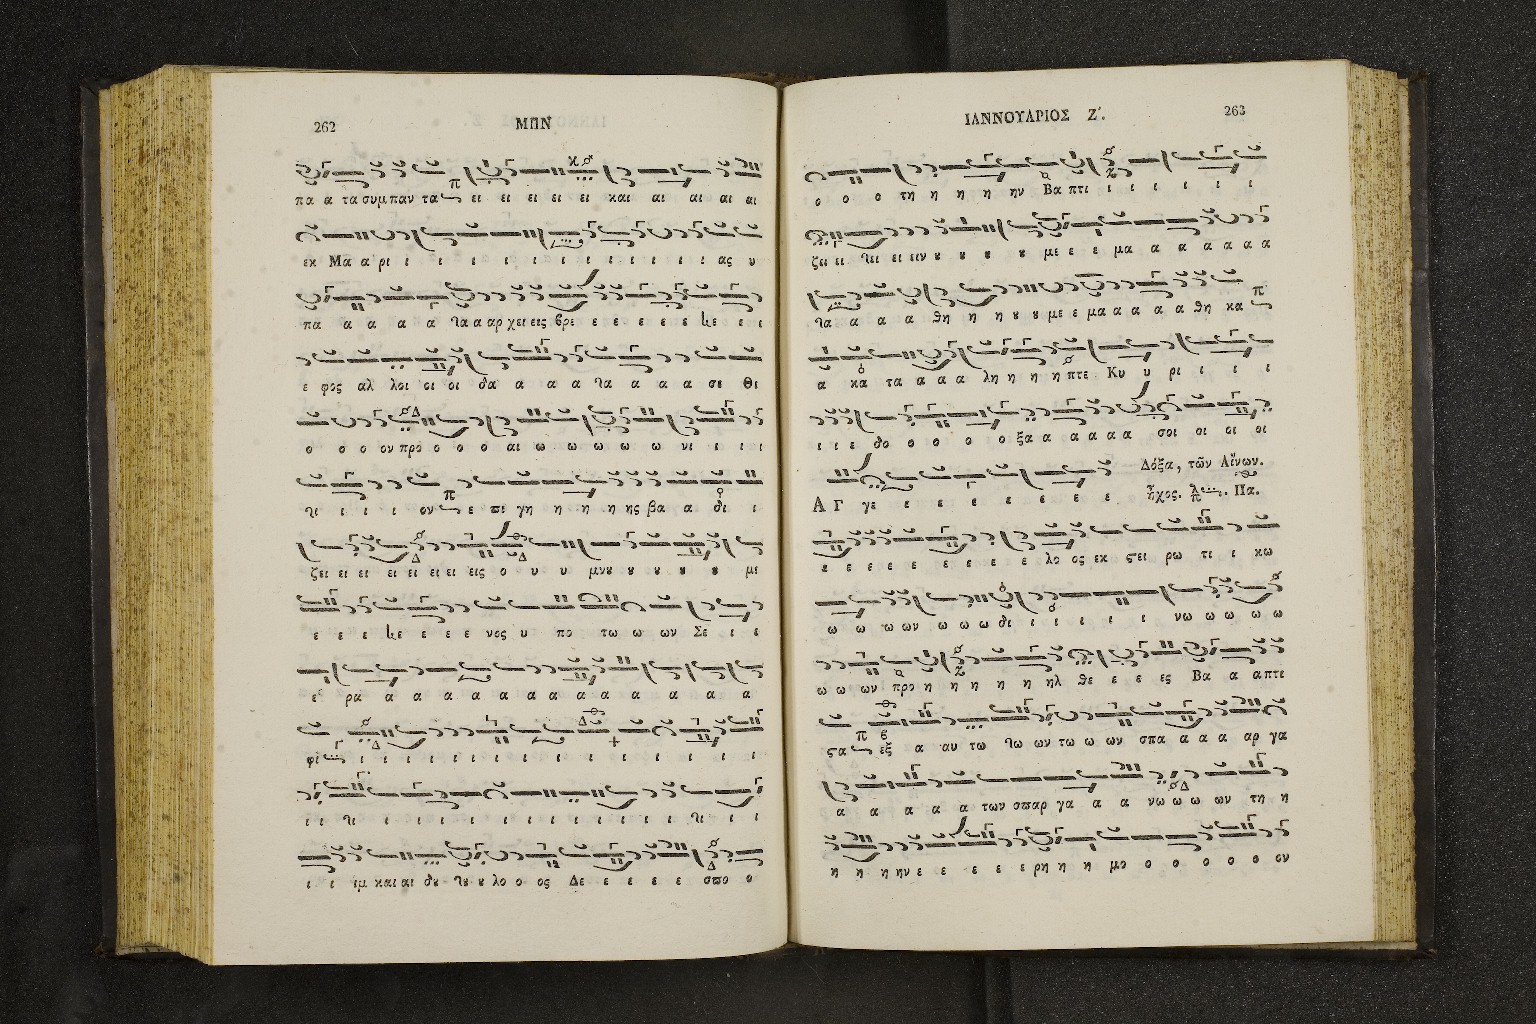 262
ΜΗΝ
πα α τα συμπαν τα ει ει ει ει ει και αι αι αι αι
εκ Μα α ρι ι ι ι ι ι ι ι ι ι ι ι ι ας υ
πα α α α α τα α αρ χει εις βρε ε ε ε ε ε κε ε ι
ε φος αλ λοι οι οι δα α α α τα α α α σι Θι
ο ο ο ον προ ο ο ο αι ω ω ω ω ω νι ι ι ι
τι ι ι ι ον ε πι γη η η η ης βα α δι ι
ζει ει ει ει ει ει ει ει εις ο υ υ μνȣ ȣ ȣ ȣ ȣ με
ε ε ε κε ε ε ε νος υ πο τω ω ων Σε ι ε
ε ρα α α α α α α α α α α α α α
φι ι ι ι ι ι ι ι ι ι ι ι ι ι ι ι
ι ι τι ι ι ι ι ι ι ι ι ι ι ι τι ι ι
ι ι ιμ και αι δȣ τȣ ȣ λο ο ος Δε ε ε ε ε σπο ο
ΙΑΝΝΟΥΑΡΙΟΣ Ζ΄.
263
ο ο ο τη η η η ην Βα πτι ι ι ι ι ι ι ι
ζει ει τει ει ειν ȣ ȣ ȣ ȣ ȣ με ε ε μα α α α α α α
τα α α α θη η η ȣ ȣ με ε μα α α α α θη κα
α κα τα α α α λη η η η πτε Κυ υ ρι ι ι ι
ι ι ε δο ο ο ο ο ο ξα α α α α α σοι οι οι οι
Δόξα, τῶν Αἴνων.
Α Γ γε ε ε ε ε ε ε ε ε ἦχος. Πα.
ε ε ε ε ε ε ε ε ε ε λο ος εκ ϛει ρω τι ι κω
ω ω ω ων ω ω ω δι ι ι ι ι ι ι νω ω ω ω ω
ω ω ων προ η η η η η ηλ θε ε ε ες Βα α απτι
ϛα εξ α αυ τω τω ων τω ω ων σπα α α α αρ γα
α α α α α των σπαρ γα α α νω ω ω ων τη η
η η η ην ε ε ε ε ε ρη η η μο ο ο ο ο ο ο ον